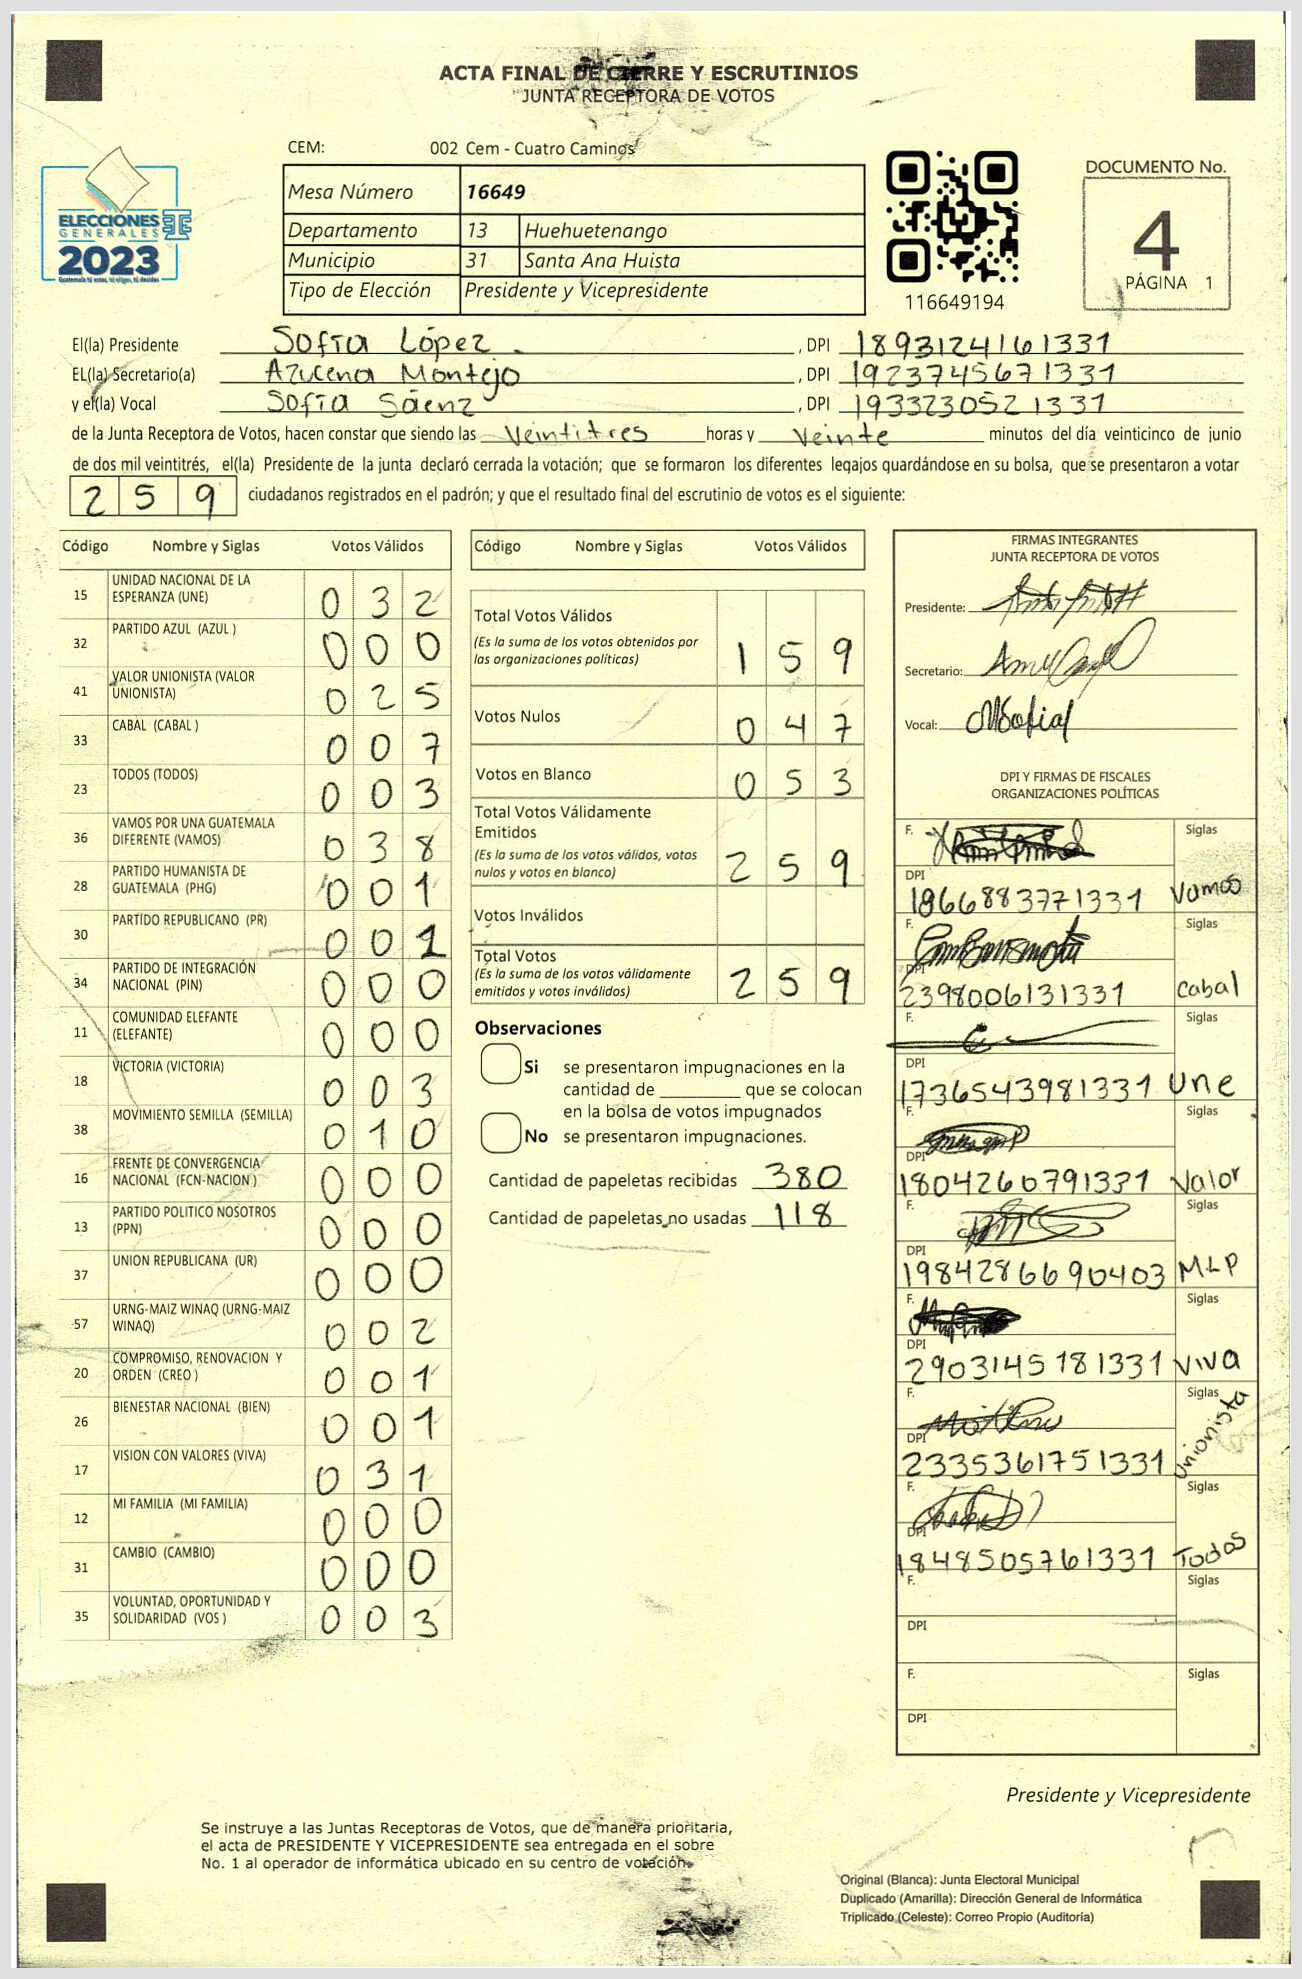 ACTA FINAL DE CIERRE Y ESCRUTINIOS
JUNTA RECEPTORA DE VOTOS
CEM: 002 Cem - Cuatro Caminos
ELECCIONES
GENERALES
2023
Guatemala tú votas, tú eliges, tú decides
Mesa Número 16649
Departamento 13 Huehuetenango
Municipio 31 Santa Ana Huista
Tipo de Elección Presidente y Vicepresidente
116649194
DOCUMENTO No.
4
PÁGINA 1
El(la) Presidente Sofía López , DPI 1893124161331
EL(la) Secretario(a) Azucena Montejo , DPI 1923745671331
y el(la) Vocal Sofía Sáenz , DPI 1933230521331
de la Junta Receptora de Votos, hacen constar que siendo las Veintitres horas y Veinte minutos del día veinticinco de junio
de dos mil veintitrés, el(la) Presidente de la junta declaró cerrada la votación; que se formaron los diferentes legajos guardándose en su bolsa, que se presentaron a votar
259 ciudadanos registrados en el padrón; y que el resultado final del escrutinio de votos es el siguiente:
Código Nombre y Siglas Votos Válidos
15 UNIDAD NACIONAL DE LA ESPERANZA (UNE) 032
32 PARTIDO AZUL (AZUL ) 000
41 VALOR UNIONISTA (VALOR UNIONISTA) 025
33 CABAL (CABAL ) 007
23 TODOS (TODOS) 003
36 VAMOS POR UNA GUATEMALA DIFERENTE (VAMOS) 038
28 PARTIDO HUMANISTA DE GUATEMALA (PHG) 001
30 PARTIDO REPUBLICANO (PR) 001
34 PARTIDO DE INTEGRACIÓN NACIONAL (PIN) 000
11 COMUNIDAD ELEFANTE (ELEFANTE) 000
18 VICTORIA (VICTORIA) 003
38 MOVIMIENTO SEMILLA (SEMILLA) 010
16 FRENTE DE CONVERGENCIA NACIONAL (FCN-NACION ) 000
13 PARTIDO POLITICO NOSOTROS (PPN) 000
37 UNION REPUBLICANA (UR) 000
57 URNG-MAIZ WINAQ (URNG-MAIZ WINAQ) 002
20 COMPROMISO, RENOVACION Y ORDEN (CREO ) 001
26 BIENESTAR NACIONAL (BIEN) 001
17 VISION CON VALORES (VIVA) 031
12 MI FAMILIA (MI FAMILIA) 000
31 CAMBIO (CAMBIO) 000
35 VOLUNTAD, OPORTUNIDAD Y SOLIDARIDAD (VOS ) 003
Código Nombre y Siglas Votos Válidos
Total Votos Válidos
(Es la suma de los votos obtenidos por
las organizaciones políticas) 159
Votos Nulos 047
Votos en Blanco 053
Total Votos Válidamente
Emitidos
(Es la suma de los votos válidos, votos
nulos y votos en blanco) 259
Votos Inválidos
Total Votos
(Es la suma de los votos válidamente
emitidos y votos inválidos) 259
Observaciones
Si se presentaron impugnaciones en la
cantidad de ________ que se colocan
en la bolsa de votos impugnados
No se presentaron impugnaciones.
Cantidad de papeletas recibidas 380
Cantidad de papeletas no usadas 118
FIRMAS INTEGRANTES
JUNTA RECEPTORA DE VOTOS
Presidente:
Secretario:
Vocal:
DPI Y FIRMAS DE FISCALES
ORGANIZACIONES POLÍTICAS
F. Siglas
DPI 1866883771331 Vamos
F. Siglas
DPI 2398006131331 Cabal
F. Siglas
DPI 1736543981331 Une
F. Siglas
DPI 1804260791331 Valor
F. Siglas
DPI 1984286690403 MLP
F. Siglas
DPI 2903145181331 VIVA
F. Siglas
DPI 2335361751331 Unionista
F. Siglas
DPI 1848505761331 Todos
F. Siglas
DPI
F. Siglas
DPI
Presidente y Vicepresidente
Se instruye a las Juntas Receptoras de Votos, que de manera prioritaria,
el acta de PRESIDENTE Y VICEPRESIDENTE sea entregada en el sobre
No. 1 al operador de informática ubicado en su centro de votación.
Original (Blanca): Junta Electoral Municipal
Duplicado (Amarilla): Dirección General de Informática
Triplicado (Celeste): Correo Propio (Auditoría)